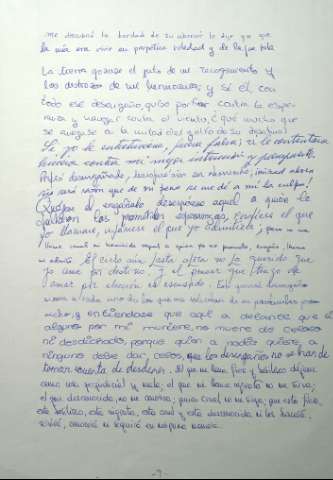 me descubrió la bondad de su intención le dije yo que
la mía era vivir en perpetua soledad y de que sola
la tierra gozase el fruto de mi recogimiento y
los despojos de mi hermosura; y si él, con
todo ese desengaño, quiso porfiar contra la espe-
ranza y navegar contra el viento, ¿qué mucho que
se anegase en la mitad del golfo de su desatino?
Si yo le entretuviera, fuera falsa; si le contentara
hiciera contra mi mejor intención y presupuesto.
Porfió desengañado, desesperó sin ser aborrecido; ¡mirad ahora
si será razón que de su pena se me dé a mí la culpa!
Quéjese el engañado, desespérese aquel a quien le
faltaron las prometidas esperanzas, confíese el que
yo llamare, ufánese el que yo admitiere; pero no me
llame cruel ni homicida aquel a quien yo no prometo, engaño, llamo
ni admito. El cielo aún hasta ahora no ha querido que
yo ame por destino, y el pensar que tengo de
amar por elección es escusado. Este general desengaño
sirva a cada uno de los que me solicitan de su particular prove-
cho; y entiéndase que aquí a delante que si
alguno por mí muriere, no muere de celoso
ni desdichado, porque quien a nadie quiere, a
ninguno debe dar celos, que los desengaños no se han de
tomar en cuenta de desdenes. El que me llama fiera y basilisco déjeme
como cosa perjudicial y mala; el que me llama ingrata no me sirva;
el que desconocida, no me conozca; quien cruel, no me siga; que esta fiera,
este basilisco, esta ingrata, esta cruel y esta desconocida ni los buscará,
servirá, conocerá ni seguirá en ninguna manera.